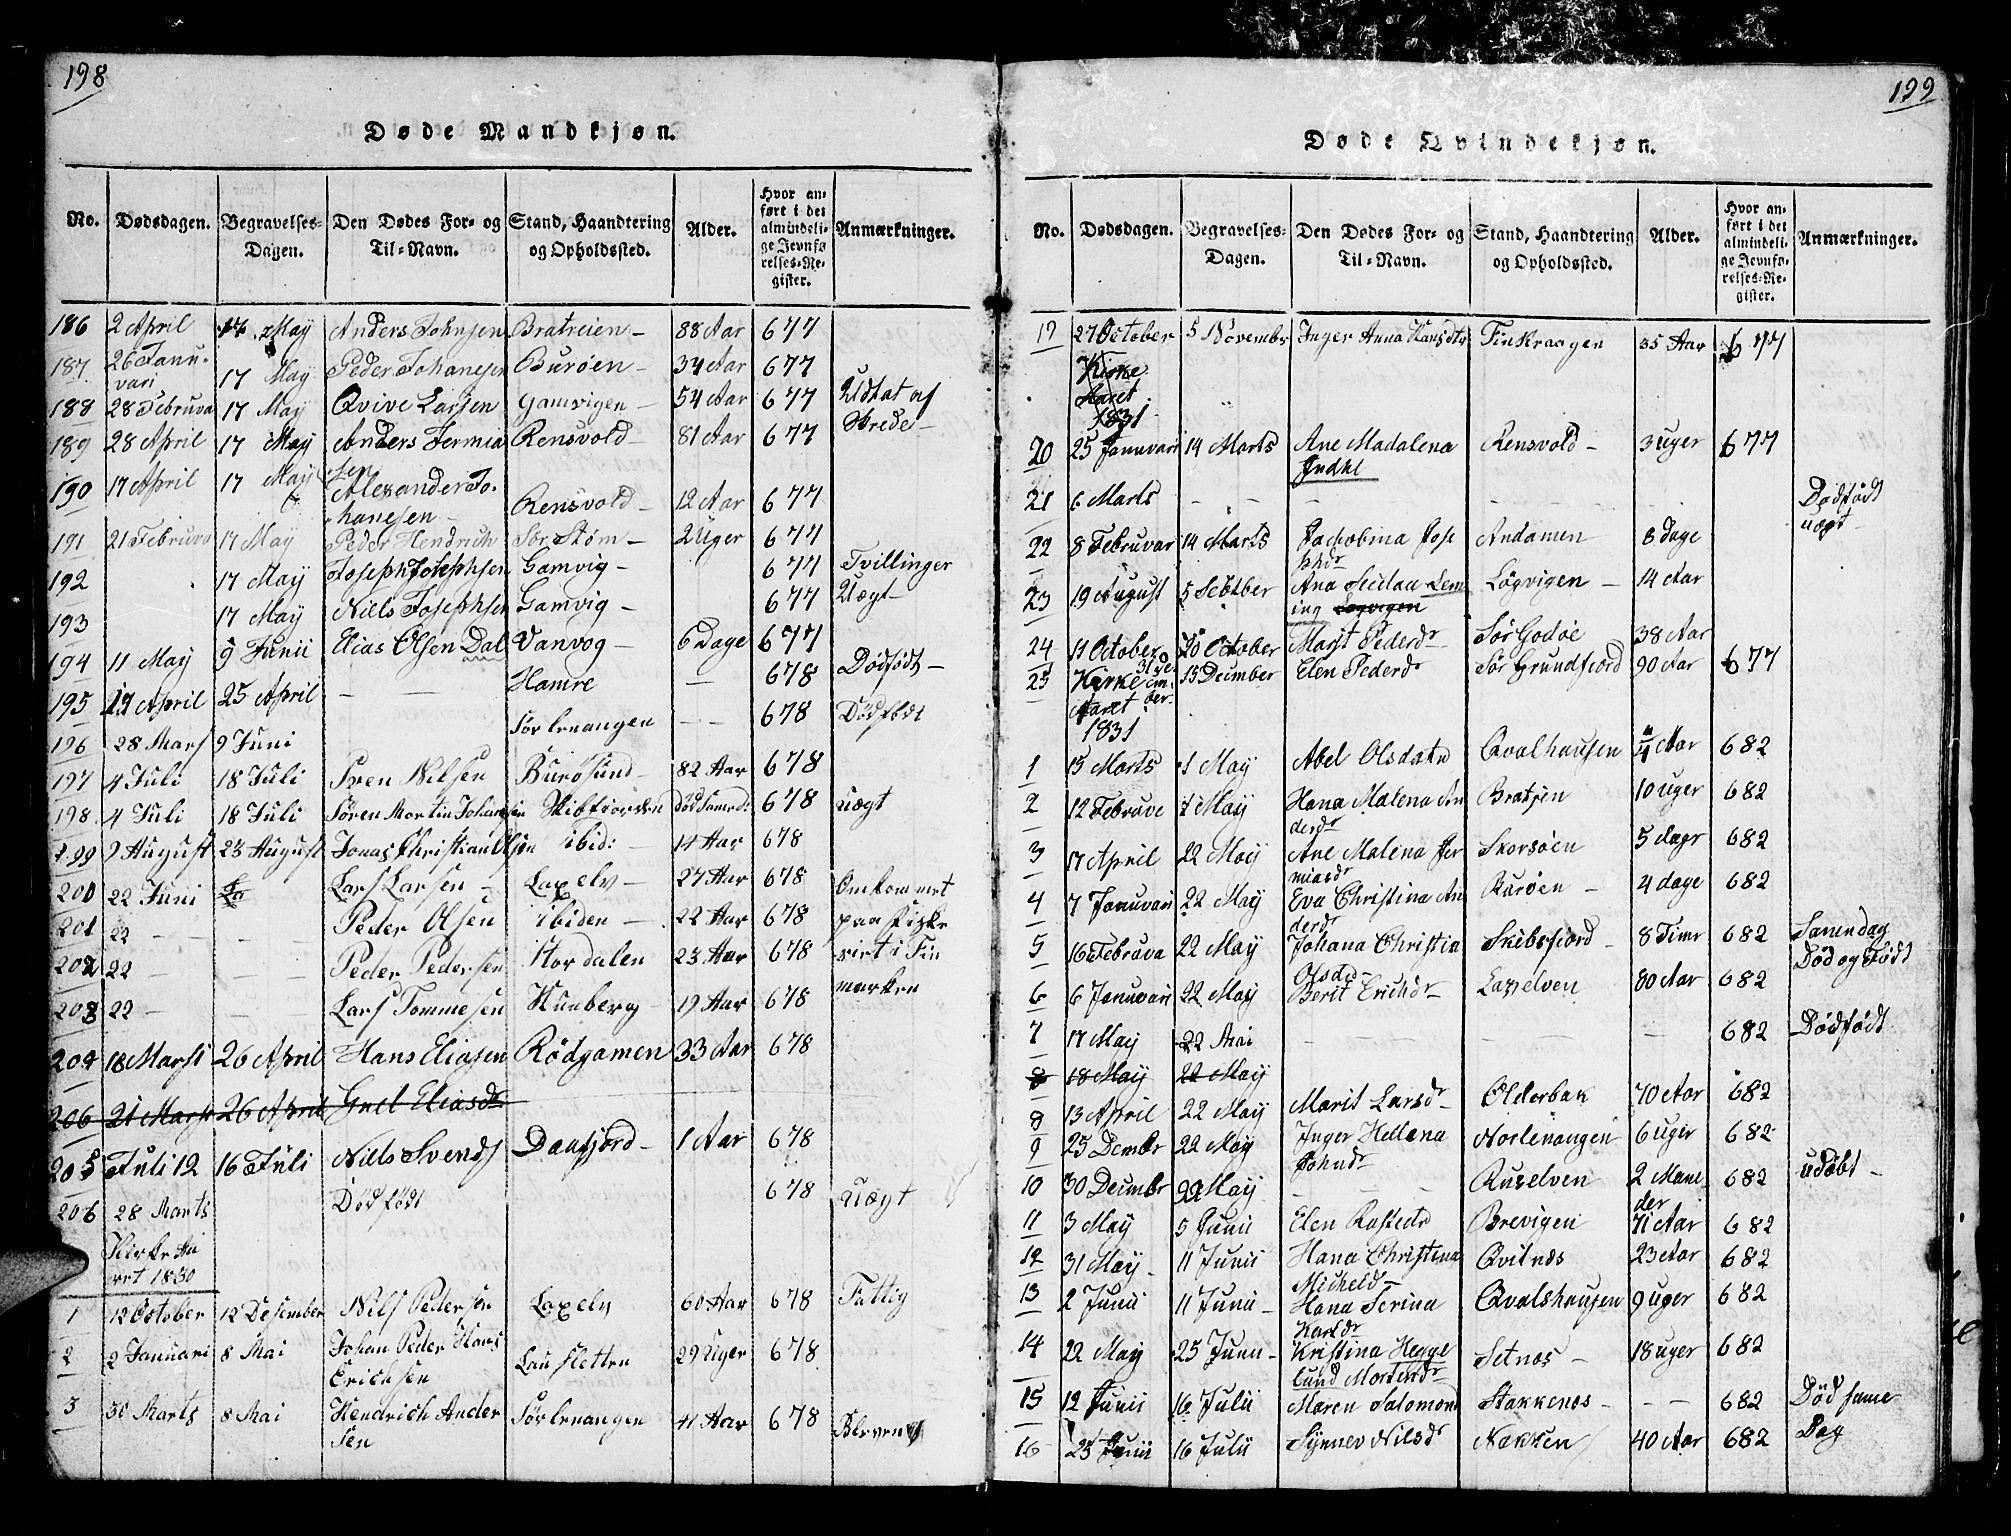 198
Døde Mandkjøn.
No. Dødsdagen. Begravelses-Dagen. Den Dødes For- og Til-Navn. Stand, Haandtering og Opholdssted. Alder. Hvor anført i det almindelige Jevnførelses-Register. Anmærkninger.
186 2 April 17 May Anders Johnsen Bratreien - 88 Aar 677
187 26 Januvari 17 May Peder Johanesen Burøen - 34 Aar 677
188 28 Februva 17 May Qvive Larsen Gamvigen - 54 Aar 677 Udtat af Skrede -
189 28 April 17 May Anders Jermiasen Rensvold - 81 Aar 677
190 17 April 17 May Alexander Johanesen - Rensvold - 12 Aar 677
191 21 Februva 17 May Peder Hendrich Sør Strøm - 2 Uger 677
192 17 May Joseph Josephsen Gamvig - 677 Tvillinger
193 17 May Niels Josephsen Gamvig - 677 Uægt -
194 11 May 9 Junii Elias Olsen Dal Vanvog - 6 Dage 677
195 17 April 25 April - Hamre - 678 Dødfødt -
196 28 Mars 9 Juni Sørlenangen - - 678 Dødfødt
197 4 Juli 18 Juli Sven Nilsen Burøsund - 82 Aar 678
198 4 Juli 18 Juli Søren Martin Johansen Skibfiorden død samd: 678 uægt
199 9 August 23 August Jonas Christian Olsen ibid: 14 Aar 678
200 22 Juni Lars Larsen - Laxelv - 27 Aar 678 Omkommet
201 22 - - - Peder Olsen ibiden - 22 Aar 678 paa Fiske
202 22 - - - Peder Pedersen Stordalen 23 Aar 678 riet i Fin
203 22 - - - Lars Tommesen Kunberg - 19 Aar 678 marken
204 18 Marsi 26 April Hans Eliasen Rødgamen 33 Aar 678
206 21 Mars 26 April Gret Eliasdr
205 Juli 12 16 Juli Nills Svends Daafjord - 1 Aar 678
206 28 Marts Dødfødt 678 Uægt
Kirke Aa
ret 1830
1 12 October 12 Desember Nils Pedersøn Laxelv 60 Aar 678 Fattig
2 2 Januari 8 Mai Johan Peder Hans Erichsen Lauksletten 29 Uger 678
3 30 Marts 8 Mai Hendrich Andersen Sørlenangen 41 Aar 678
199
Døde Qvindekjøn.
No. Dødsdagen. Begravelses-Dagen. Den Dødes For- og Til-Navn. Stand, Haandtering og Opholdssted. Alder. Hvor anført i det almindelige Jevnførelses-Register. Anmærkninger.
19 27 October 5 Novembr Inger Anna Hansdtr Finkraagen 35 Aar 677
Kirke
Aaret
1831
20 25 Januvari 14 Marts Ane Madalena Indhl Rensvold - 3 uger 677
21 6 Marts - - - - - Dødfødt uægt
22 8 Februvar 14 Marts Jachobina Josephdr Andamen 8 dage
23 19 August 5 Sebtber Ana Seclaa Lening Løgvigen - 14 Aar
24 11 October 20 October Marit Pederdr - Sør Godøe 38 Aar
25 31 Decmber 15 Decmber Elen Pederdr Sør Grundfiord 90 Aar 677
Kirke
Aaret
1831
1 15 Marts 1 May Abel Olsdatr Qvalhausen Aar 682
2 12 Februve 7 May Hana Malena Anderdr Bratsen 10 uger 682
3 17 April 22 May Ane Malena Jermiasdr Skorsøen 5 dage 682
4 7 Januvari 22 May Eva Christina Anderdr Burøen - 4 dage 682
5 16 Februva 22 May Johana Christia Olsdr - Skibsfiord - 8 Time 682 Samendag Død og Født
6 6 Januvari 22 May Berit Erichdr - Laxelven 80 Aar 682
7 17 May 22 Mai - - - - 682 Dødfødt
8 18 May 22 May
8 13 April 22 May Marit Larsdr - Olderbak 70 Aar 682
9 25 Dembr 22 May Inger Hellena Johndr Norlenangen 6 uger 682
10 30 Decmbr 22 May - - - Ruselven 2 Maneder 682 udøbt -
11 3 May 5 Junii Elen Rastedr Brevigen 71 Aar 682
12 31 May - 11 Junii Hana Christina Micheldr - Qvitnæs 23 Aar 682
13 2 Junii 11 Junii - Hana Serina Karldr Qvalshausen 9 uger 682
14 22 May 25 Junii - Kristina Heggelund Mortendr Setnæs - 18 uger 682
15 12 Junii 16 Julii Maren Salomond Stakkenæs - - - 682 Død same Dag
16 25 Junii 16 Julii Synnev Nilsdr Nakken 40 Aar 682